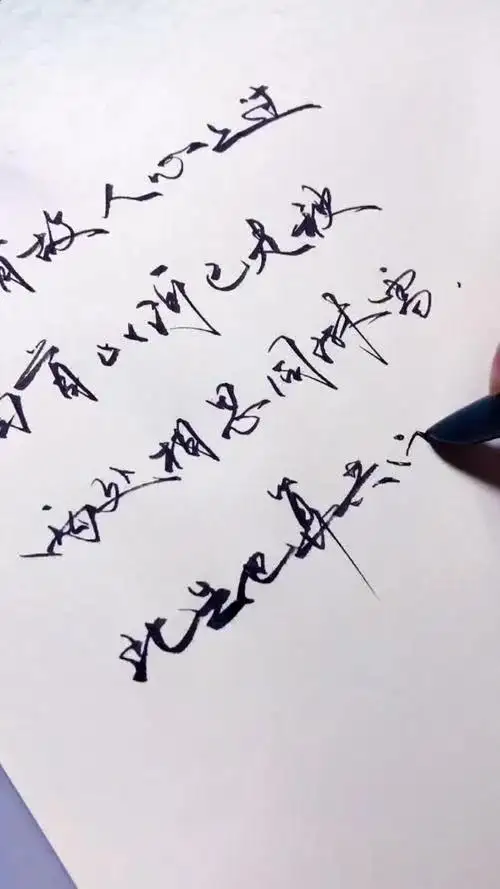 有故人心上过
回首山河已是秋
两处相思同淋雪
此生也算共